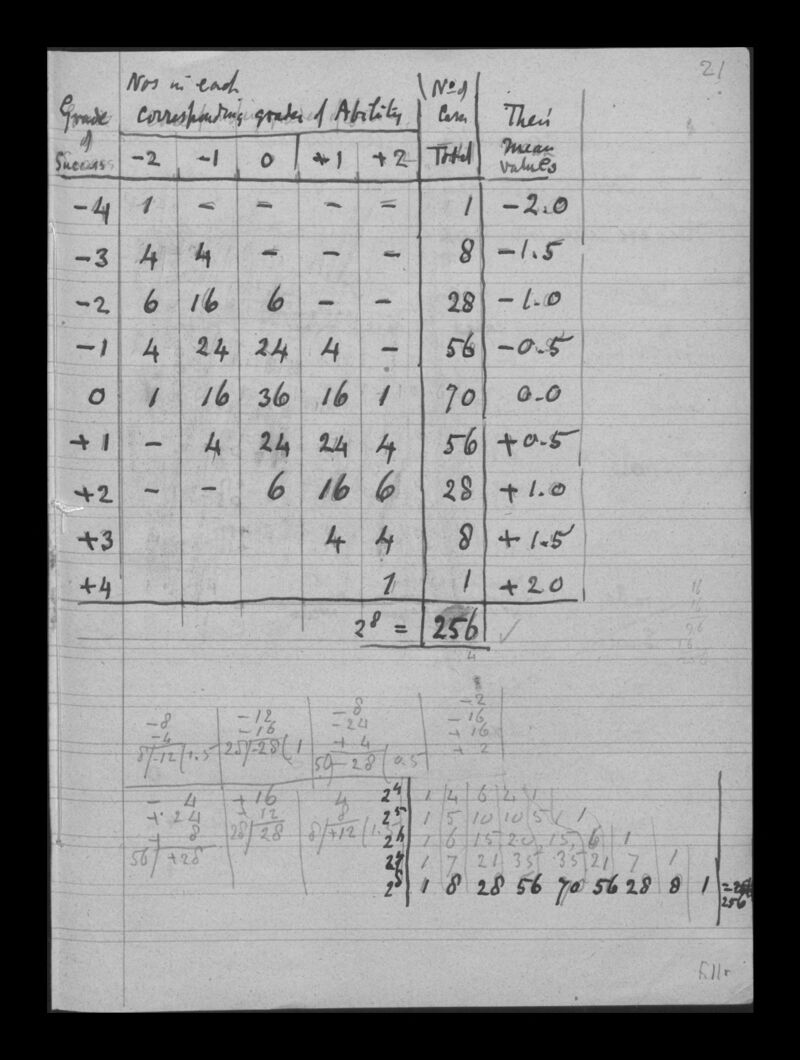 21
Nos in each
corresponding grades of Ability
Grade of Success
-2 -1 0 +1 +2
No of Cases Total
Their mean values
-4 1 - - - - 1 -2.0
-3 4 4 - - - 8 -1.5
-2 6 16 6 - - 28 -1.0
-1 4 24 24 4 - 56 -0.5
0 1 16 36 16 1 70 0.0
+1 - 4 24 24 4 56 +0.5
+2 - - 6 16 6 28 +1.0
+3 4 4 8 +1.5
+4 1 1 +2.0
2⁸ = 256 ✓
4
-8 -12 -8 -2
-4 -16 -24 -16
8/-12(1.5 28/-28(1 +4 +16
56/-28(0.5 +2
-4 +16 4
+24 +12 8
+8 28/28 8/+12(1.5
56/+28
2⁴ 1 4 6 4 1
2⁵ 1 5 10 10 5 1
2⁶ 1 6 15 20 15 6 1
2⁷ 1 7 21 35 35 21 7 1
2⁸ 1 8 28 56 70 56 28 8 1 =256
256